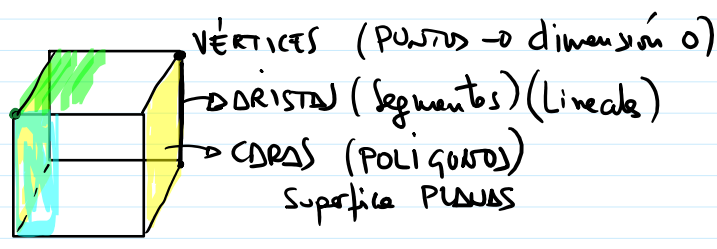 VÉRTICES (PUNTOS → dimensión 0)
→ ARISTAS (Segmentos) (Lineales)
→ CARAS (POLIGONOS)
Superficie PLANAS